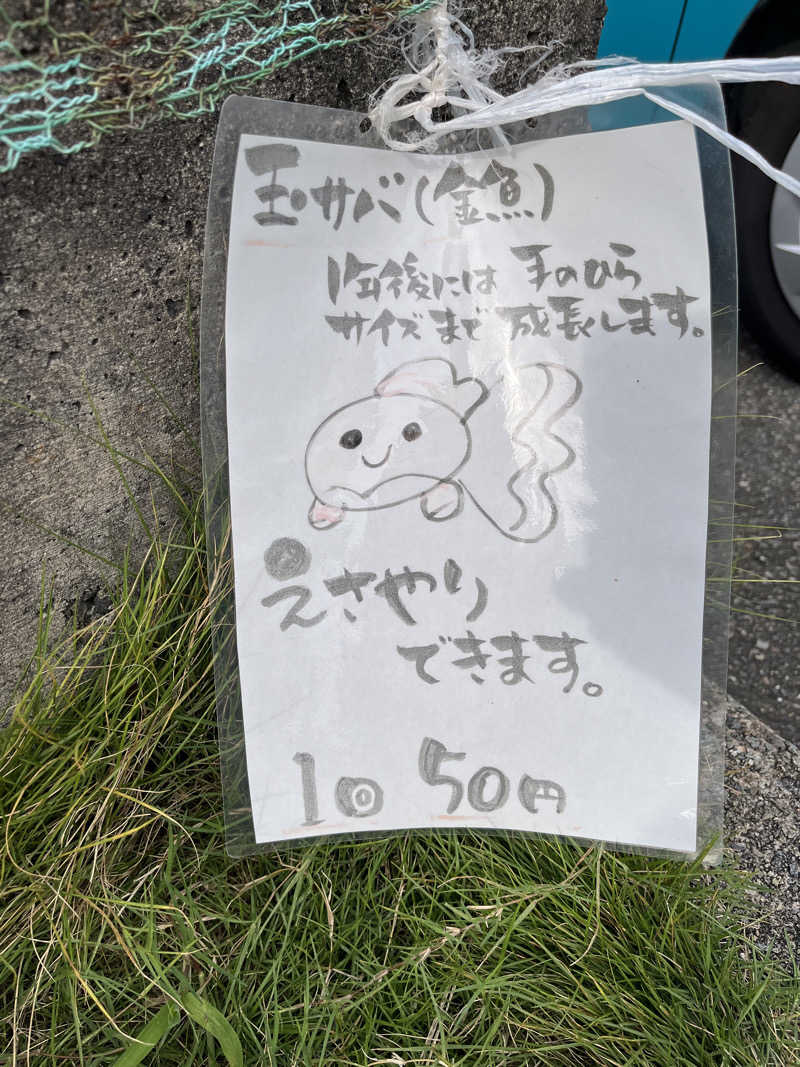 玉サバ(金魚)
1年後には 手のひら
サイズまで成長します。
えさやり
できます。
1回 50円